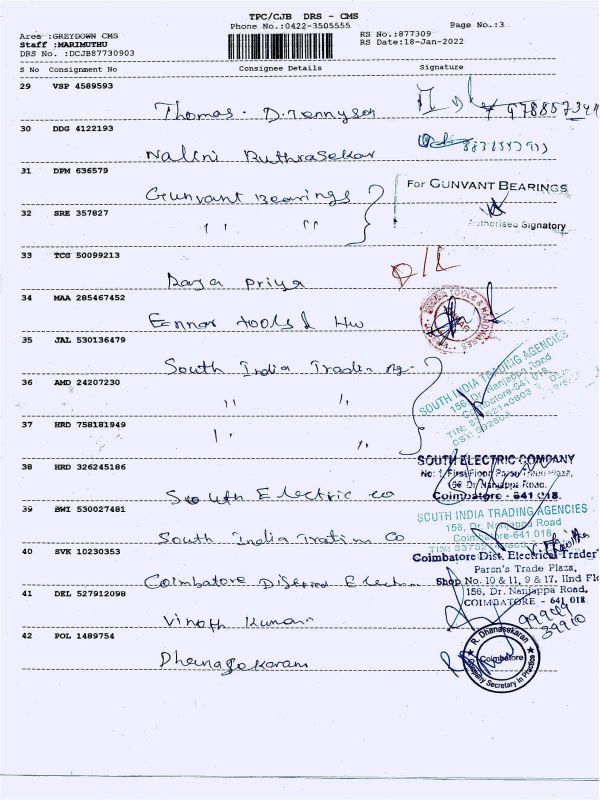 TPC/CJB DRS - CMS
Phone No.:0422-3505555
Page No.:3
Area :GREYDOWN CMS
Staff :MARIMUTHU
DRS No. :DCJB87730903
RS No.:877309
RS Date:18-Jan-2022
S No Consignment No Consignee Details Signature
29 VSP 4589593
Thomas. D. Tennyson
30 DDG 4122193
Nalini Ruthrasekar
31 DPM 636579
Gunvant Bearings
For GUNVANT BEARINGS
Authorised Signatory
32 SRE 357827
" "
33 TCG 50099213
Raja Priya
34 MAA 285467452
Ennar tools & Hw
35 JAL 530136479
South India Tradin Ag.
SOUTH INDIA TRADING AGENCIES
156, Dr. Nanjappa Road
Coimbatore-641 018.
36 AMD 24207230
" "
37 HRD 758181949
" "
38 HRD 326245186
South Electric co
SOUTH ELECTRIC COMPANY
No: 1, First Floor,
156 Dr. Nanjappa Road.
Coimbatore - 641 018.
39 BWI 530027481
South India Tratin Co
SOUTH INDIA TRADING AGENCIES
156, Dr. Nanjappa Road
Coimbatore-641 018.
40 SVK 10230353
Coimbatore District Electri
Coimbatore Dist. Electrical Trader
Parsn's Trade Plaza,
Shop No. 10 & 11, 9 & 17, IInd Flo
156, Dr. Nanjappa Road,
COIMBATORE - 641 018.
41 DEL 527912098
Vinoth Kumar
99949
39910
42 POL 1489754
Dhanasekaran
R. Dhanasekaran
Coimbatore
Company Secretary in Practice